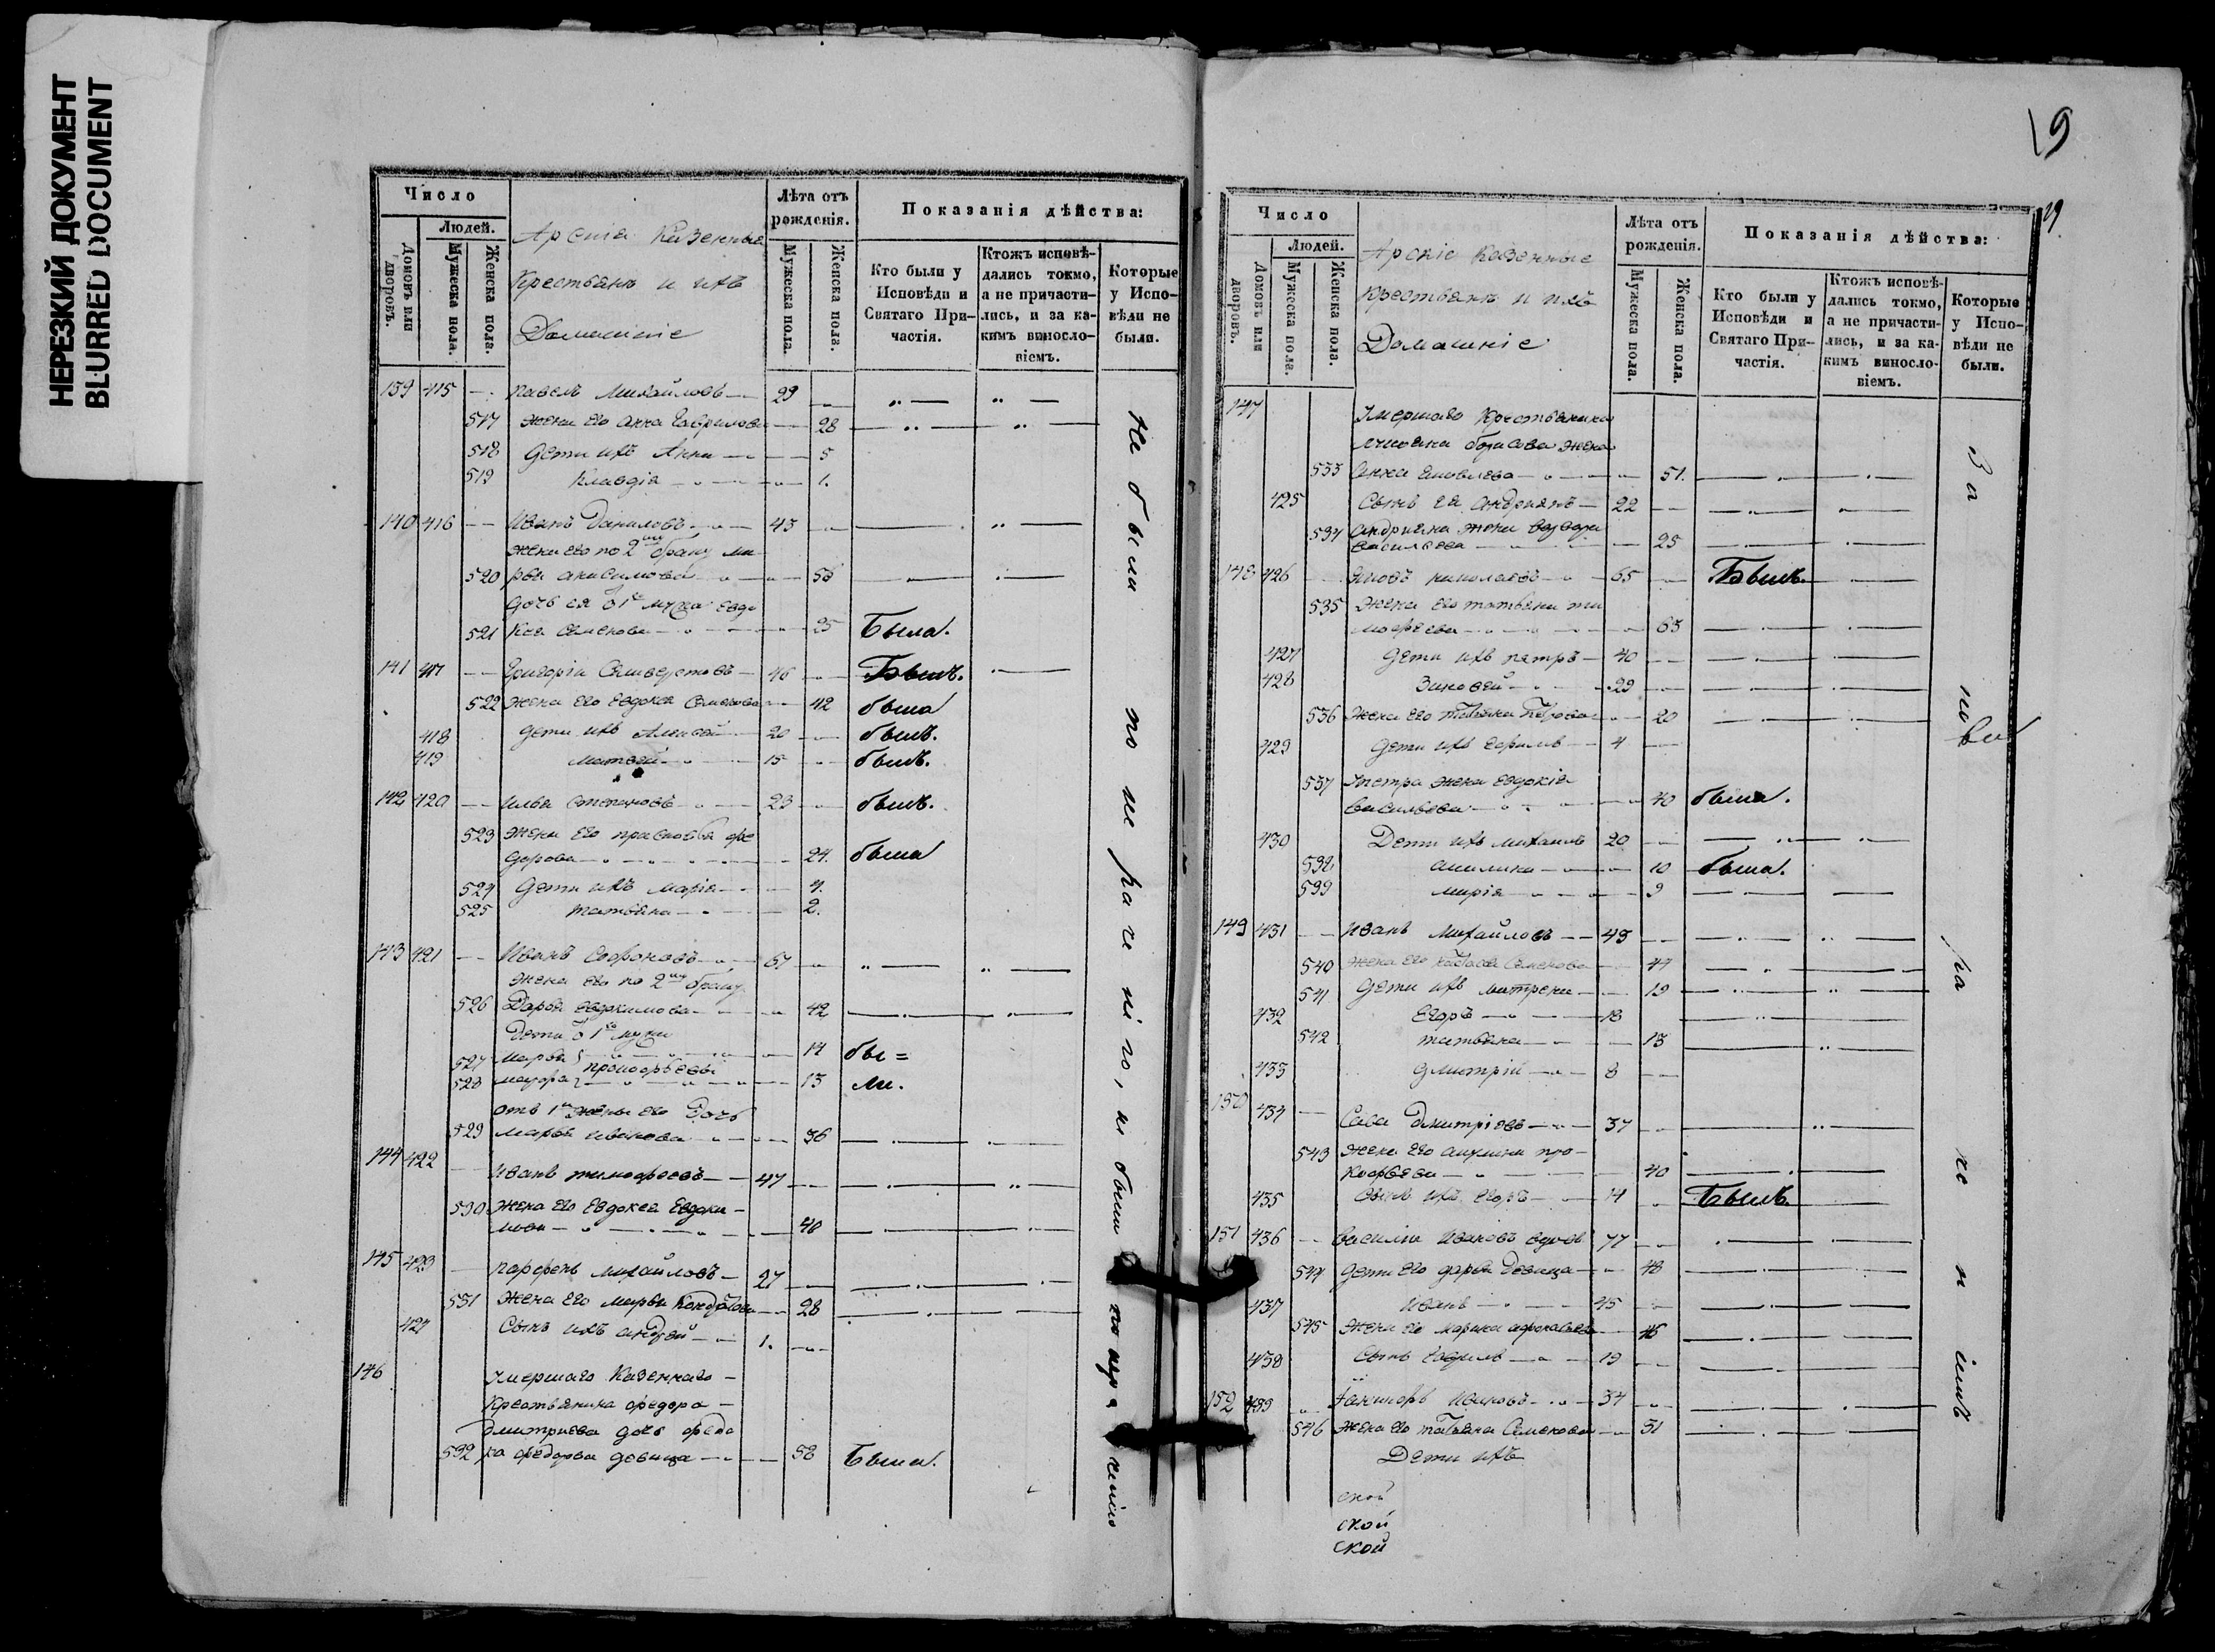 НЕРЕЗКИЙ ДОКУМЕНТ
BLURRED DOCUMENT
Число
Людей.
Домовъ или дворовъ.
Мужеска пола.
Женска пола.
Арскіе Казенные
Крестьяне и ихъ
Домашніе
Лѣта отъ рожденія.
Мужеска пола.
Женска пола.
Показанія дѣйства:
Кто были у Исповѣди и Святаго При-частія.
Ктожъ исповѣ-дались токмо, а не причасти-лись, и за ка-кимъ винosло-віемъ.
Которые у Испо-вѣди не были.
139 415 — Павелъ Михайловъ — 29
517 жена его Анна Гаврилова — 28
518 дети ихъ Анна — 5
519 Клавдіа — 1.
140 416 — Иванъ Даниловъ — 43
жена его по 2му браку Ма-
520 рья Анисимова — 53
дочь ея о 1го мужа Евдо
521 кея Семенова — 25 Была.
141 417 — Григоріи Селиверстовъ — 46 Былъ.
522 жена его Евдокея Семенова — 42 была
418 дети ихъ Алексей — 20 былъ.
419 Матвей — 15 былъ.
142 420 — Илья Степановъ — 23 былъ.
523 жена его Прасковья Фе
дорова — 24. была
524 дети ихъ Марiа — 4.
525 Татьяна — 2.
143 421 — Иванъ Софроновъ — 67
жена его по 2му браку
526 Дарья Евдокимова — 42
Дети о 1го мужа
527 Марья — 14 бы=
Прокофьевы
528 Мавра — 13 ли.
отъ 1й жены его Дочь
529 Марья Иванова — 36
144 422 — Иванъ Тимофеевъ — 47
530 жена его Евдокея Евдоки-
мова — 40
145 423 — Парфенъ Михайловъ — 27
531 жена его Марья Кондратова — 28
424 Сынъ ихъ Андрей — 1.
146 Умершаго Казеннаго —
Крестьянина Федора —
Дмитриева дочь Федо
532 ра Федорова девица — 58 Была.
не были по не раченію, и были по нера ченію
19
19
Число
Людей.
Домовъ или дворовъ.
Мужеска пола.
Женска пола.
Арскіе Казенные
Крестьяне и ихъ
Домашніе
Лѣта отъ рожденія.
Мужеска пола.
Женска пола.
Показанія дѣйства:
Кто были у Исповѣди и Святаго При-частія.
Ктожъ исповѣ-дались токмо, а не причасти-лись, и за ка-кимъ винosло-віемъ.
Которые у Испо-вѣди не были.
147 Умершаго Крестьянина
Борисова жена
533 Анна Яковлева — 51.
425 Сынъ ея Андриянъ — 22
534 Андрияна жена
Васильева — 25
148 426 Яковъ Николаевъ — 65 Былъ.
535 Жена его Татьяна Ти
мофеева — 63
427 дети ихъ Петръ — 40
428 Зиновей — 29
536 Жена его Татьяна Петрова — 20
429 дети ихъ — 4
537 Упетра жена Евдокіа
Васильева — 40 была.
430 Дети ихъ Михаилъ 20
538 Акилина — 10 была.
539 Маріа — 9
149 431 — Иванъ Михайловъ — 43
540 жена его Семенова — 44
541 дети ихъ Матрена — 19
432 Егоръ — 18
542 Татьяна — 13
433 Дмитрій — 8
150 434 — Сава Дмитріевъ — 37
543 жена его Акулина Про-
кофьева — 40
435 Сынъ ихъ Егоръ — 14 Былъ.
151 436 — Василіи Ивановъ вдовъ 77
544 дети его Дарья девица — 48
437 Иванъ — 45
545 жена его Марина Афонасьева — 46
438 Сынъ Гаврилъ — 19
152 439 Никифоръ Ивановъ — 34
546 жена его Татьяна Семенова — 31
Дети ихъ
ской
ской
ской